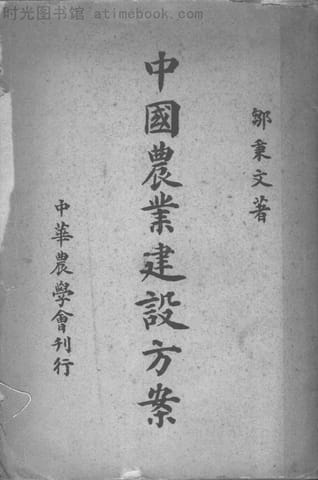 时光图书馆 atimebook.com
鄒秉文著
中國農業建設方案
中華農學會刊行